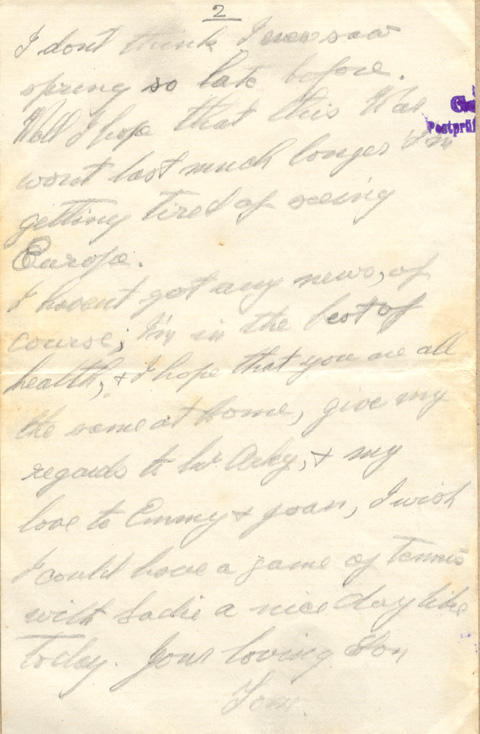 2
I don't think I ever saw
spring so late before.
Well I hope that this War
Postprüf
wont last much longer I'm
getting tired of seeing
Europe.
I havent got any news, of
course; I'm in the best of
health, & I hope that you are all
the same at home, give my
regards to &
my
love to Emmy & Joan, I wish
I could have a game of Tennis
with Sadie a nice day like
Today. Your loving Son
Tom.